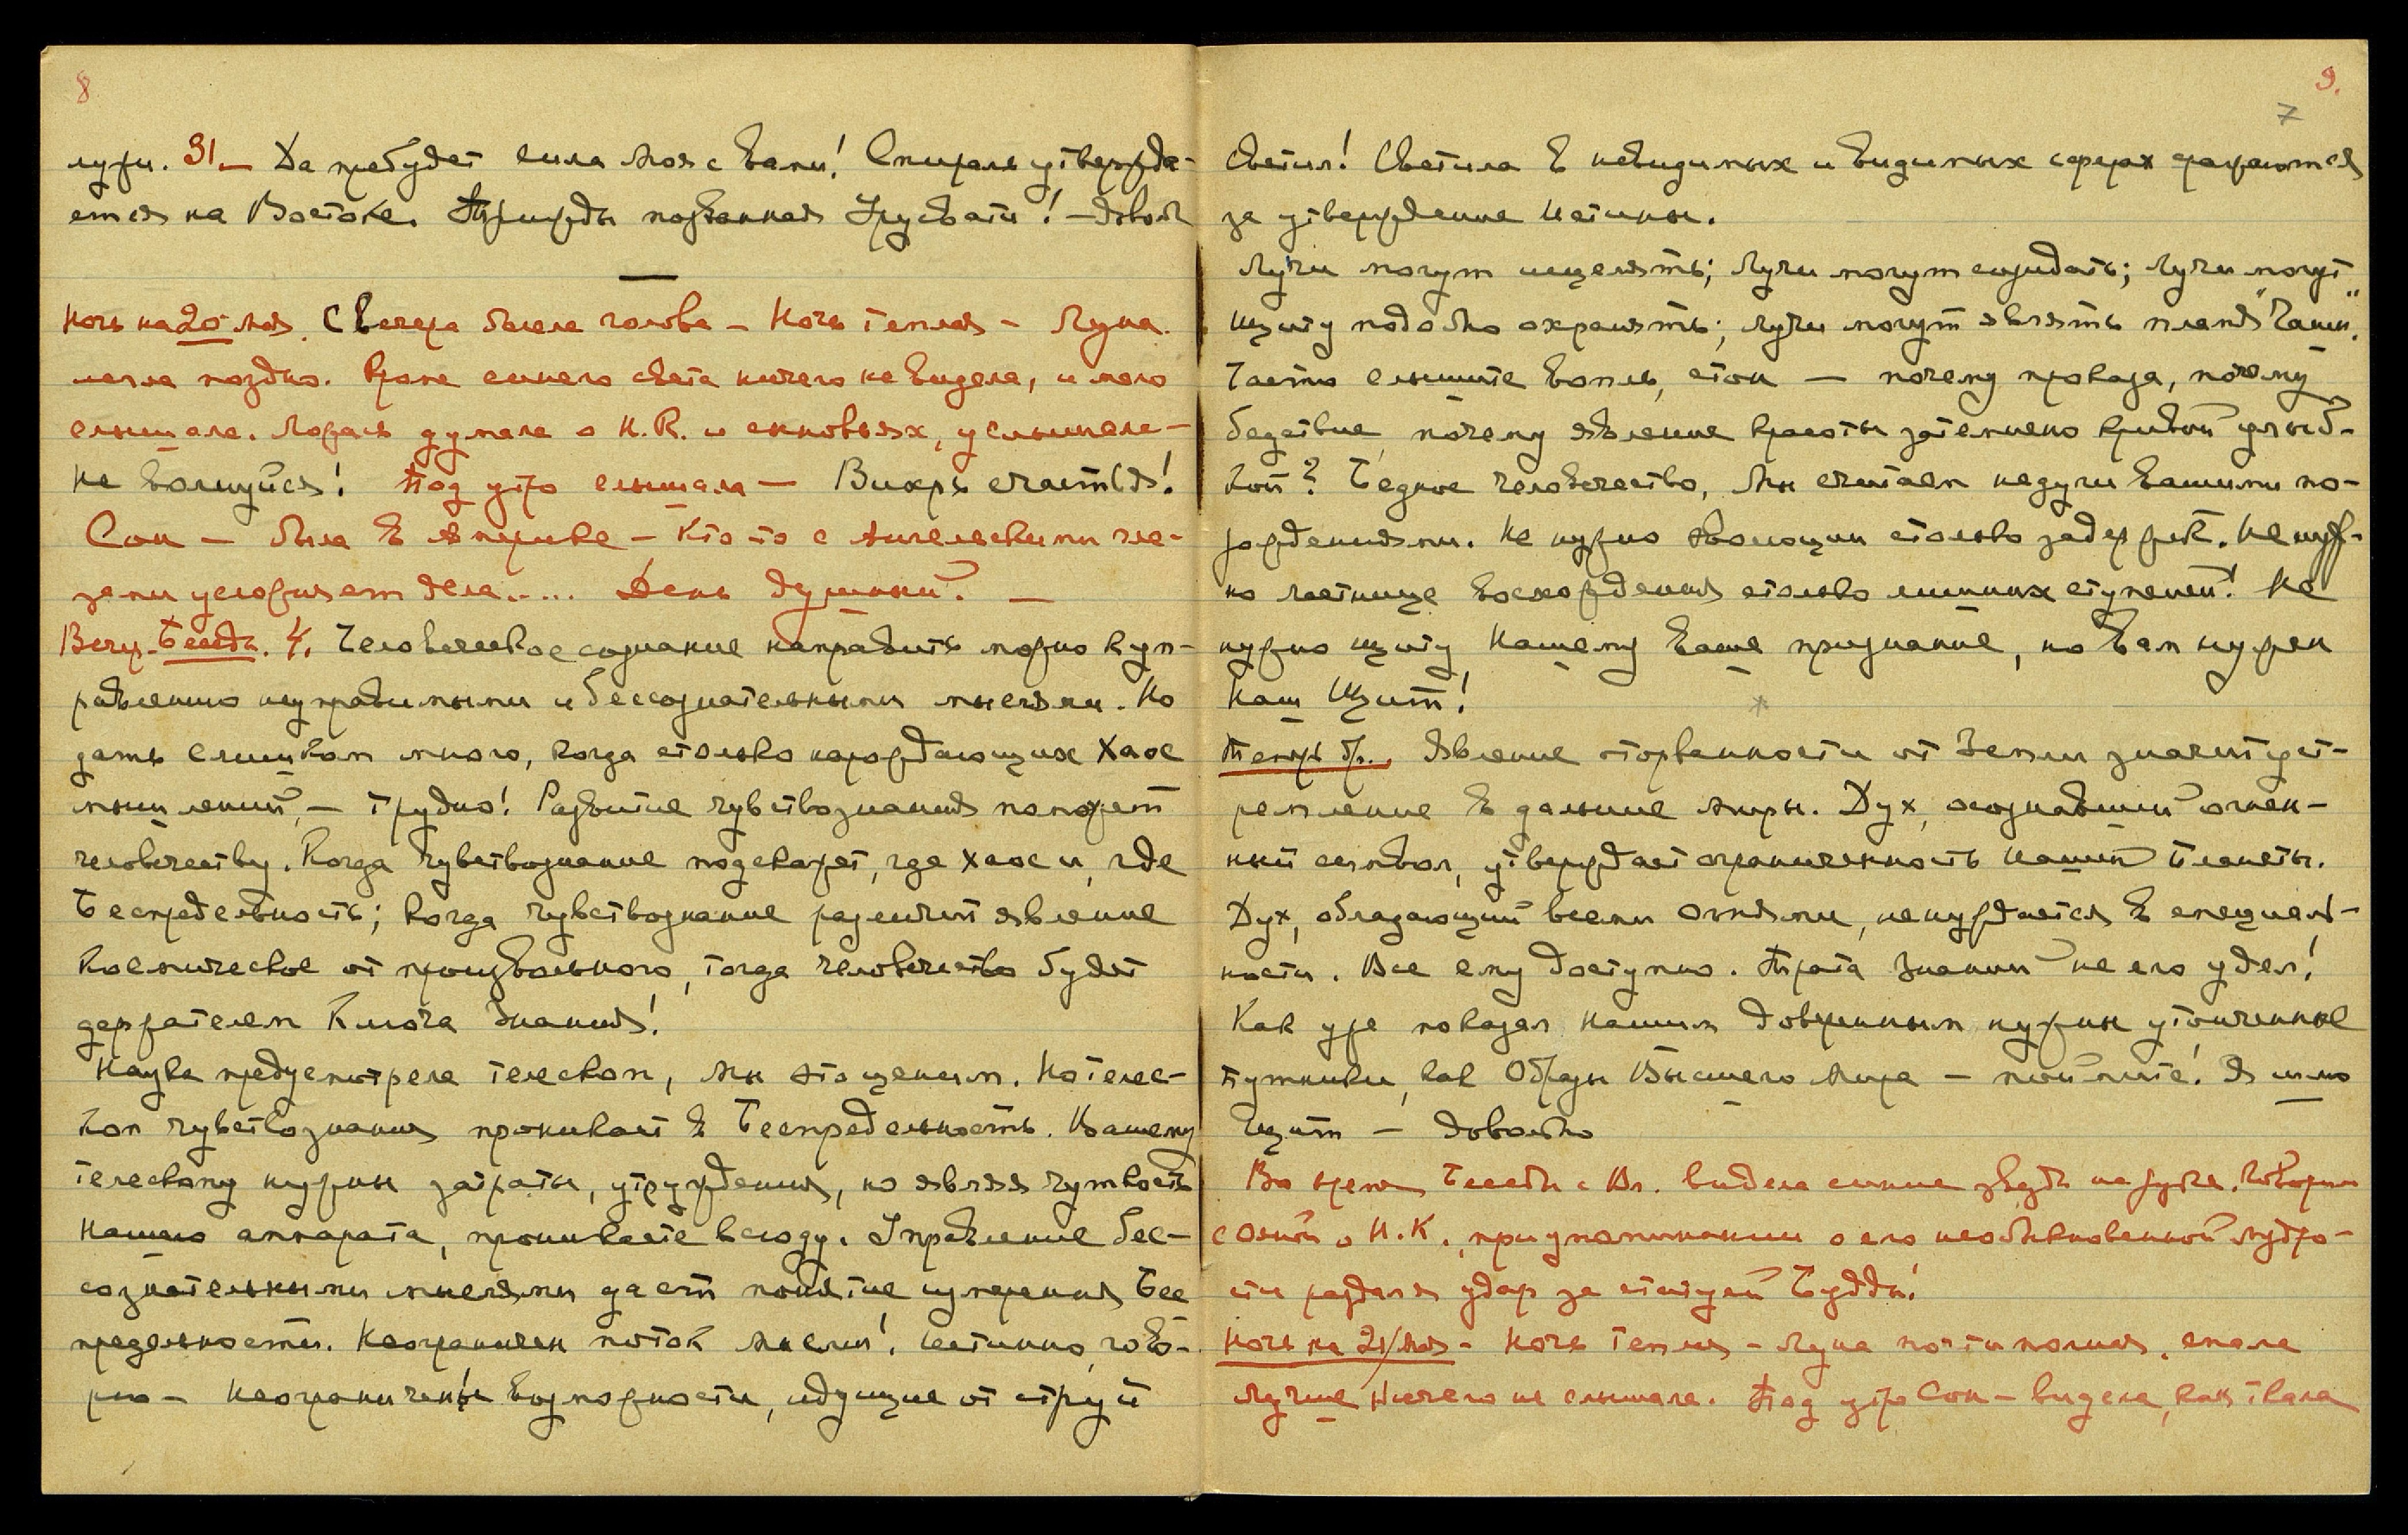 8
лучи. 31. — Да пребудет сила Моя с вами! Спираль утвержда-
ется на Востоке. Трижды позванная Урусвати! — Довол
Ночь на 20 мая. С вечера болела голова — Ночь теплая — Луна.
легла поздно. Кроме синего света ничего не видела, и мало
слышала. Ложась думала о Н.К. и сыновьях, услышала —
не волнуйся! Под утро слышала — Вихрь счастья!
Сон — была в Америке — Кто-то с Ангельскими гла-
зами усложняет дела..... День душный. —
Вечер. Беседа. 4. Человеческое сознание направить можно к уп-
равлению неуправимыми и бессознательными мыслями. Но
дать слишком много, когда столько нарождающих хаос
мышлений, — трудно! Развитие чувствознания поможет
человечеству. Когда чувствознание подскажет, где хаос и, где
Беспредельность; когда чувствознание различит явление
космическое от произвольного, тогда человечество будет
держателем Ключа Знания!
Наука предусмотрела телескоп, Мы это ценим. Но телес-
коп чувствознания проникает в Беспредельность. Вашему
телескопу нужны затраты, утруждения, но являя чуткость
нашего аппарата, проникаете всюду. Управление бес-
сознательными мыслями даст понятие измерения Бес
предельности. Неограничен поток мысли! Истинно, гово-
рю — неограничены возможности, идущие от струй
9.
7
Светил! Светила в невидимых и видимых сферах сражаются
за утверждение Истины.
Лучи могут исцелять; лучи могут созидать; лучи могут
щиту подобно охранять; лучи могут являть пламя "Чаши".
Часто слышите вопль, стон — почему проказа, почему
бедствие, почему явление красоты затемнено кривой улыб-
кой? Бедное человечество, Мы считаем недуги вашими по-
рождениями. Не нужно эволюции столько задержек. Не нуж-
но лестнице восхождения столько лишних ступеней! Не
нужно щиту Нашему ваше признание, но вам нужен
Наш Щит!
*
Теперь др. Явление оторванности от Земли значит уст-
ремление в дальние миры. Дух, осознавший огнен-
ный символ, утверждает ограниченность нашей планеты.
Дух, обладающий всеми Огнями, не нуждается в специаль-
ности. Все ему доступно. Трата знаний не его удел!
Как уже показал Нашим доверенным нужны утонченные
путники, как Образы Высшего Мира — поймите! Я шлю
Щит — довольно
Во время Беседы с Вл. видела синие звезды на
с Яной о Н.К., при упоминании о его необыкновенной мудро-
сти раздался удар за статуей Будды!
Ночь на 21/мая — Ночь теплая — Луна почти полная. спала
лучше ничего не слышала. Под утро Сон — видела, как ткала